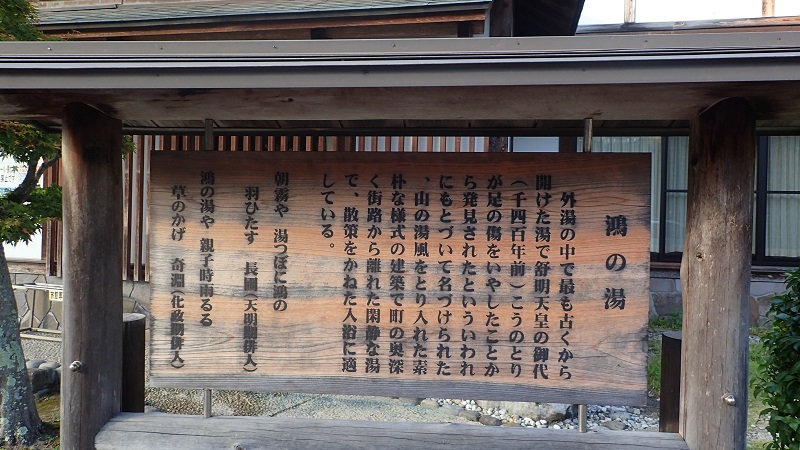 鴻の湯
外湯の中で最も古くから
開けた湯で舒明天皇の御代
(千四百年前)こうのとり
が足の傷をいやしたことか
ら発見されたといういわれ
にもとづいて名づけられた
、山の湯風をとり入れた素
朴な様式の建築で町の奥深
く街路から離れた閑静な湯
で、散策をかねた入浴に適
している。
朝霧や 湯つぼに鴻の
羽ひたす 長圃(天明期俳人)
鴻の湯や 親子時雨るる
草のかげ 奇淵(化政期俳人)